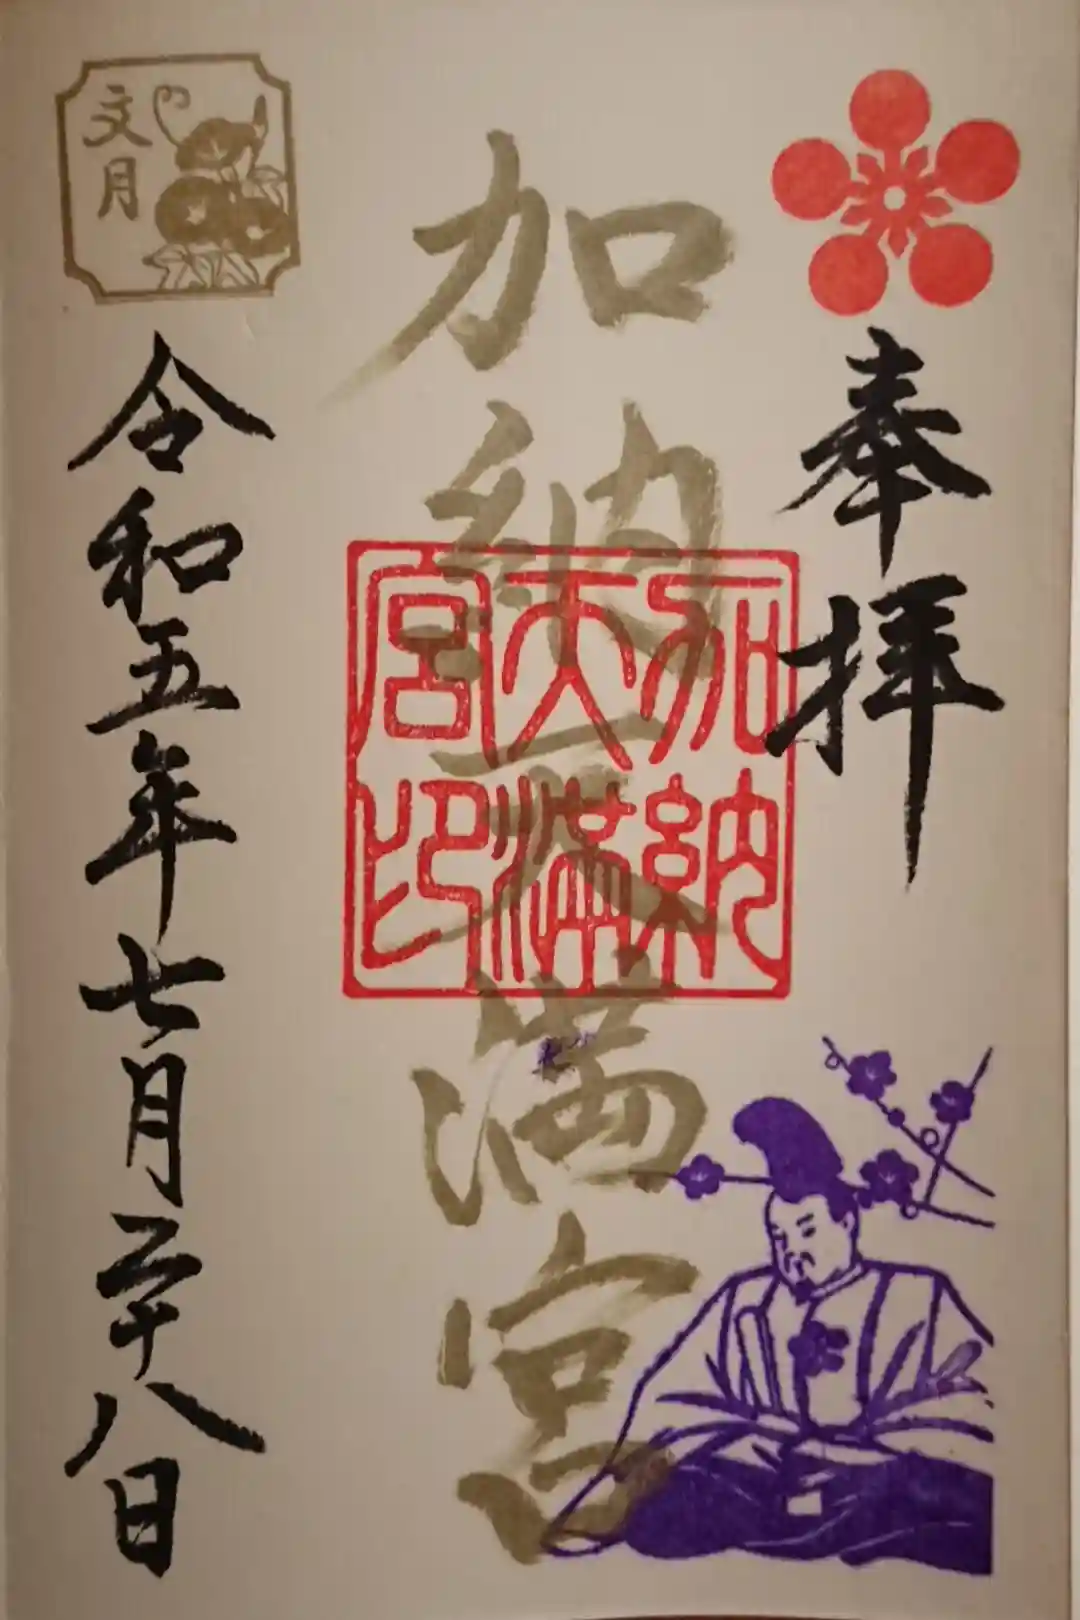 奉拝
加納天満宮
加納天満宮印
文月
令和五年七月二十八日